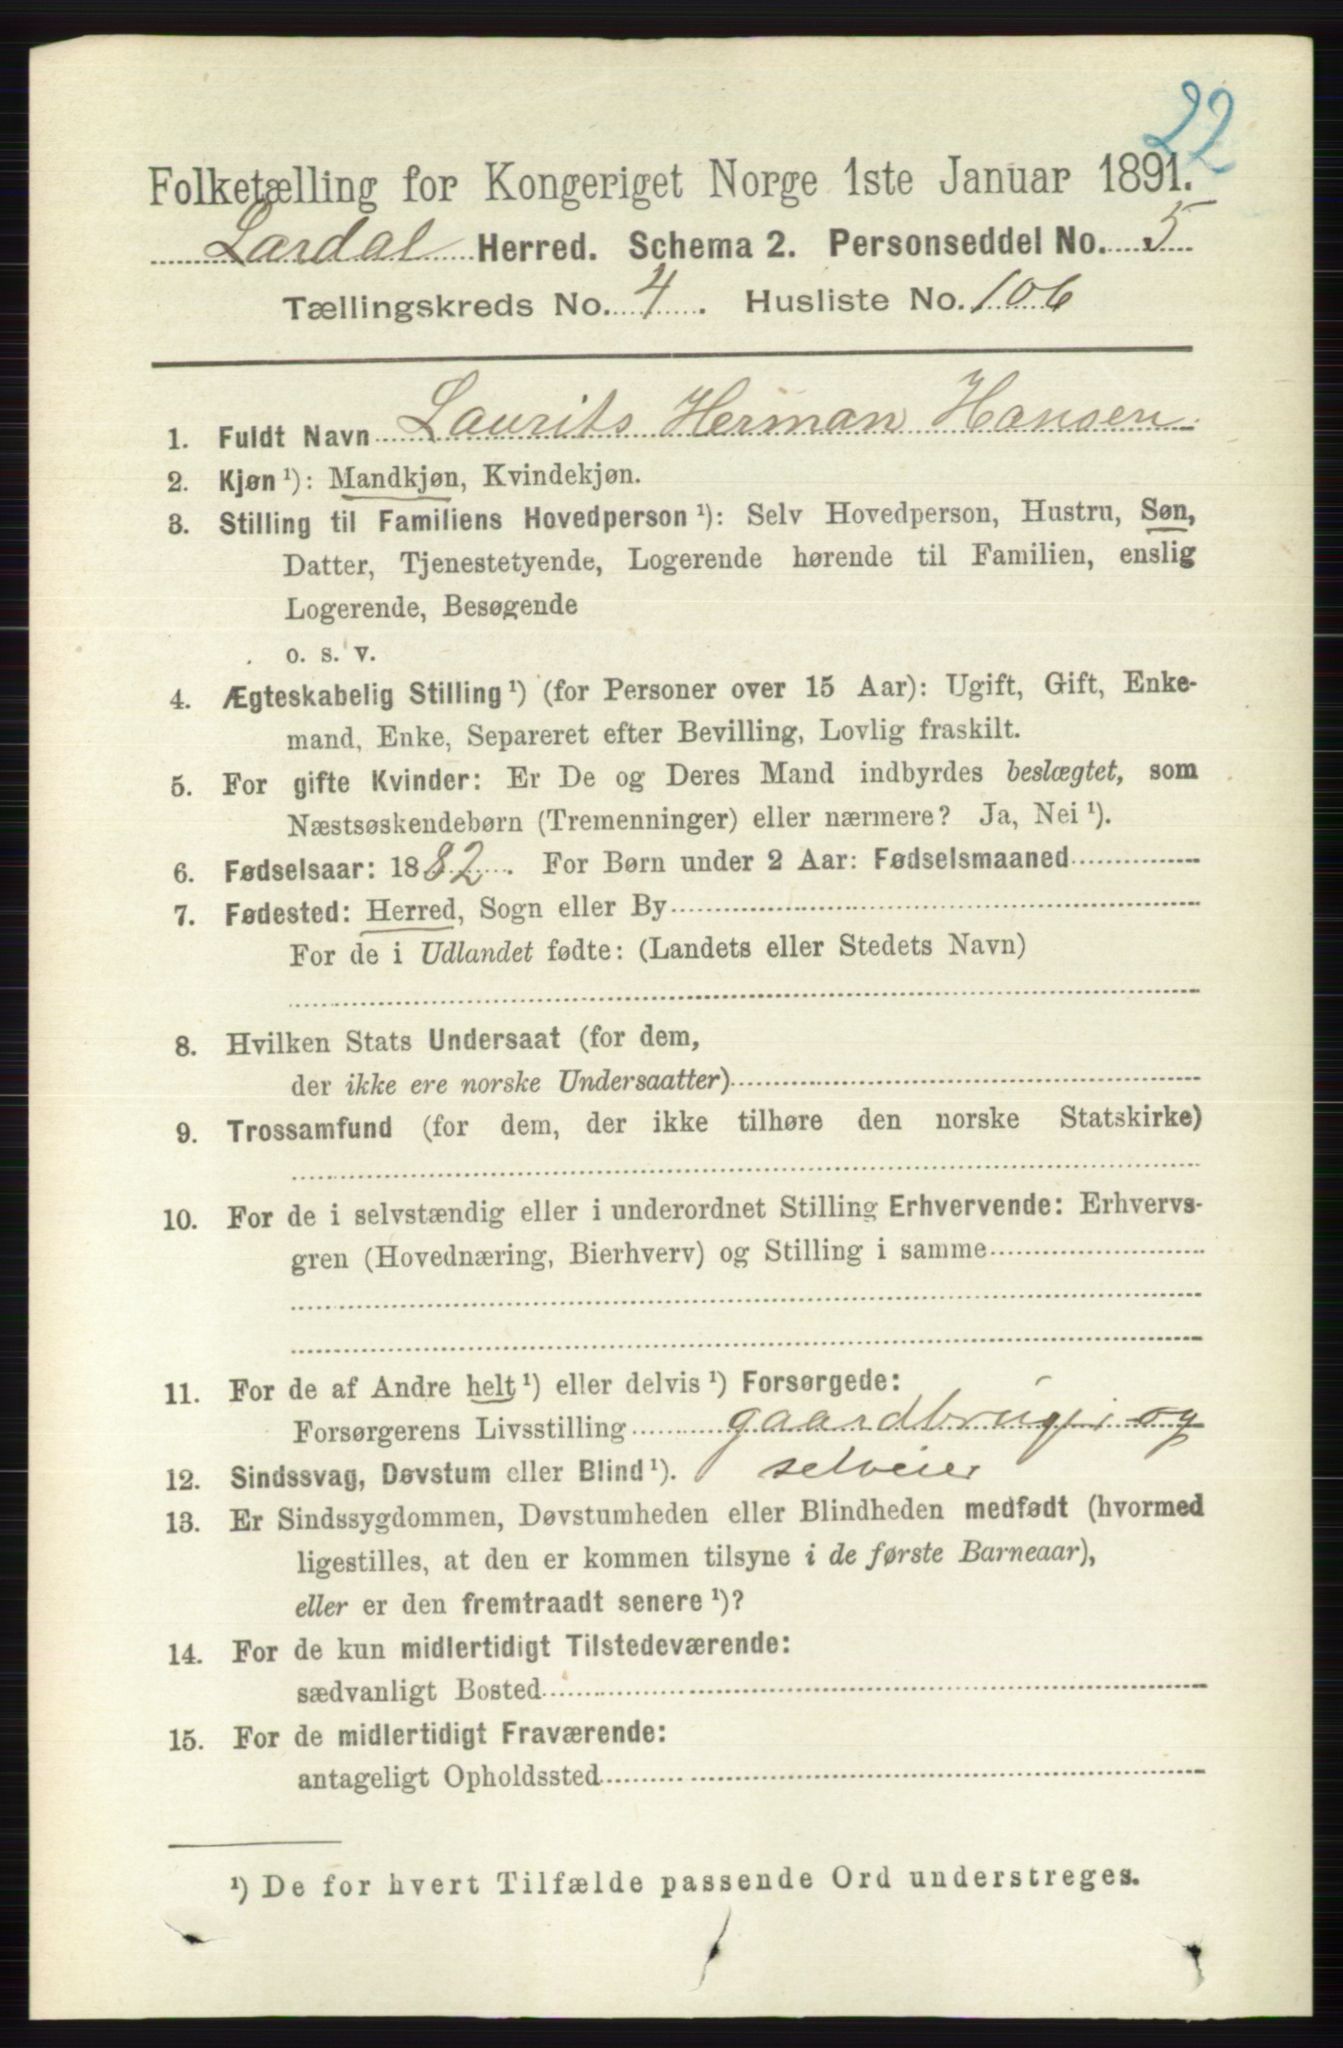 22
Folketælling for Kongeriget Norge 1ste Januar 1891.
Lardal Herred. Schema 2. Personseddel No. 5
Tællingskreds No. 4. Husliste No. 106
1. Fuldt Navn Laurits Herman Hansen
2. Kjøn ¹): Mandkjøn, Kvindekjøn.
3. Stilling til Familiens Hovedperson ¹): Selv Hovedperson, Hustru, Søn,
Datter, Tjenestetyende, Logerende hørende til Familien, enslig
Logerende, Besøgende
o. s. v.
4. Ægteskabelig Stilling ¹) (for Personer over 15 Aar): Ugift, Gift, Enke-
mand, Enke, Separeret efter Bevilling, Lovlig fraskilt.
5. For gifte Kvinder: Er De og Deres Mand indbyrdes beslægtet, som
Næstsøskendebørn (Tremenninger) eller nærmere? Ja, Nei ¹).
6. Fødselsaar: 1882. For Børn under 2 Aar: Fødselsmaaned
7. Fødested: Herred, Sogn eller By
For de i Udlandet fødte: (Landets eller Stedets Navn)
8. Hvilken Stats Undersaat (for dem,
der ikke ere norske Undersaatter)
9. Trossamfund (for dem, der ikke tilhøre den norske Statskirke)
10. For de i selvstændig eller i underordnet Stilling Erhvervende: Erhvervs-
gren (Hovednæring, Bierhverv) og Stilling i samme
11. For de af Andre helt ¹) eller delvis ¹) Forsørgede:
Forsørgerens Livsstilling gaardbruger og
12. Sindssvag, Døvstum eller Blind ¹). selveier
13. Er Sindssygdommen, Døvstumheden eller Blindheden medfødt (hvormed
ligestilles, at den er kommen tilsyne i de første Barneaar),
eller er den fremtraadt senere ¹)?
14. For de kun midlertidigt Tilstedeværende:
sædvanligt Bosted
15. For de midlertidigt Fraværende:
antageligt Opholdssted
¹) De for hvert Tilfælde passende Ord understreges.